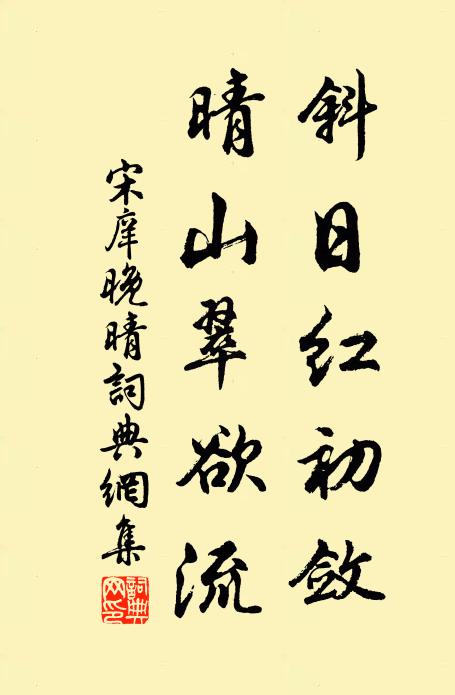 斜日红初敛
晴山翠欲流
宋庠晚晴詞典網集
詞典网印